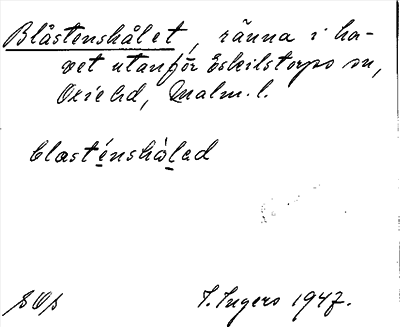 Blåstenshålet, ränna i ha-
vet utanför Eskilstorps sn,
Oxie hd, Malm. l.
blasténshålad
I. Ingers 1947.